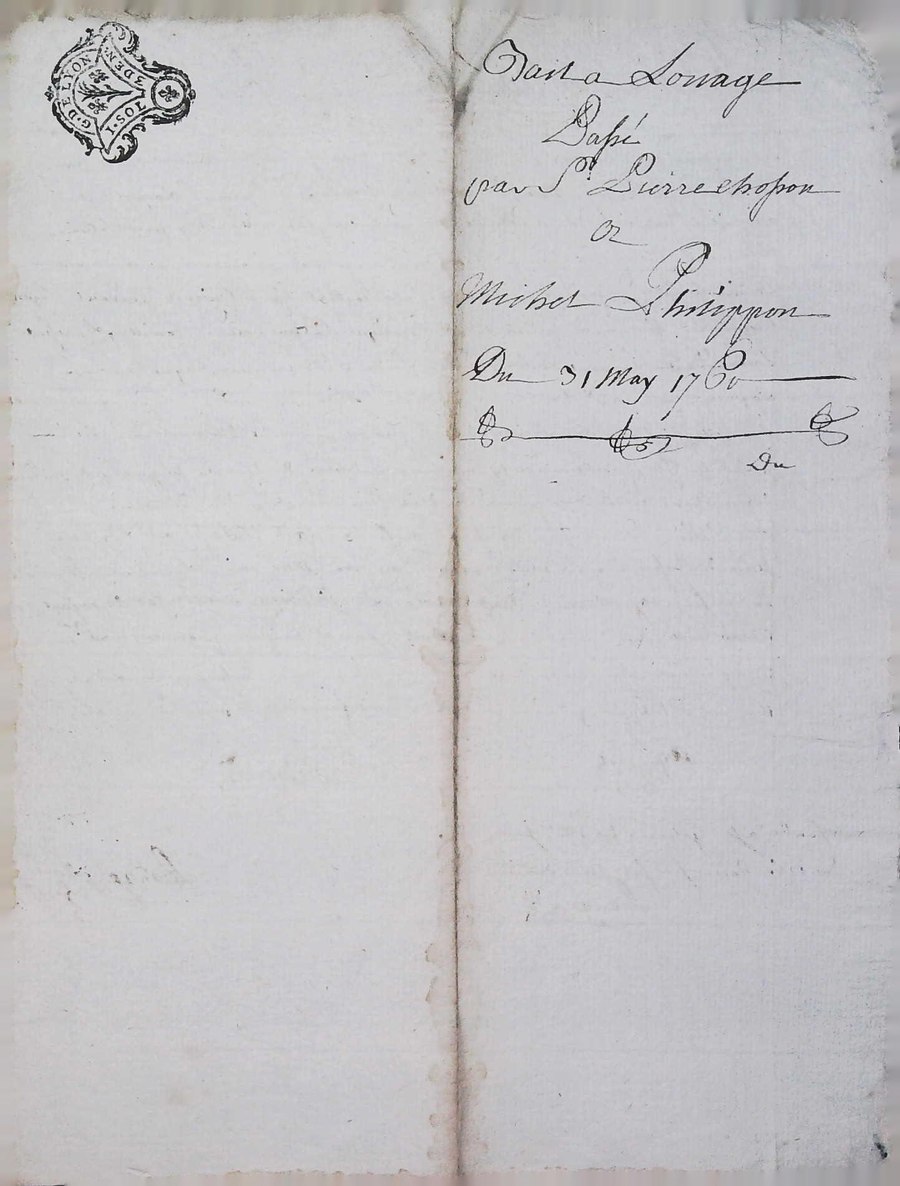 G. DE LYON
1. SOL 3 DEN.
Bail a Louage
Passé
par Sr. Pierre chosson
a
Michel Philippon
Du 31 May 1760
Du